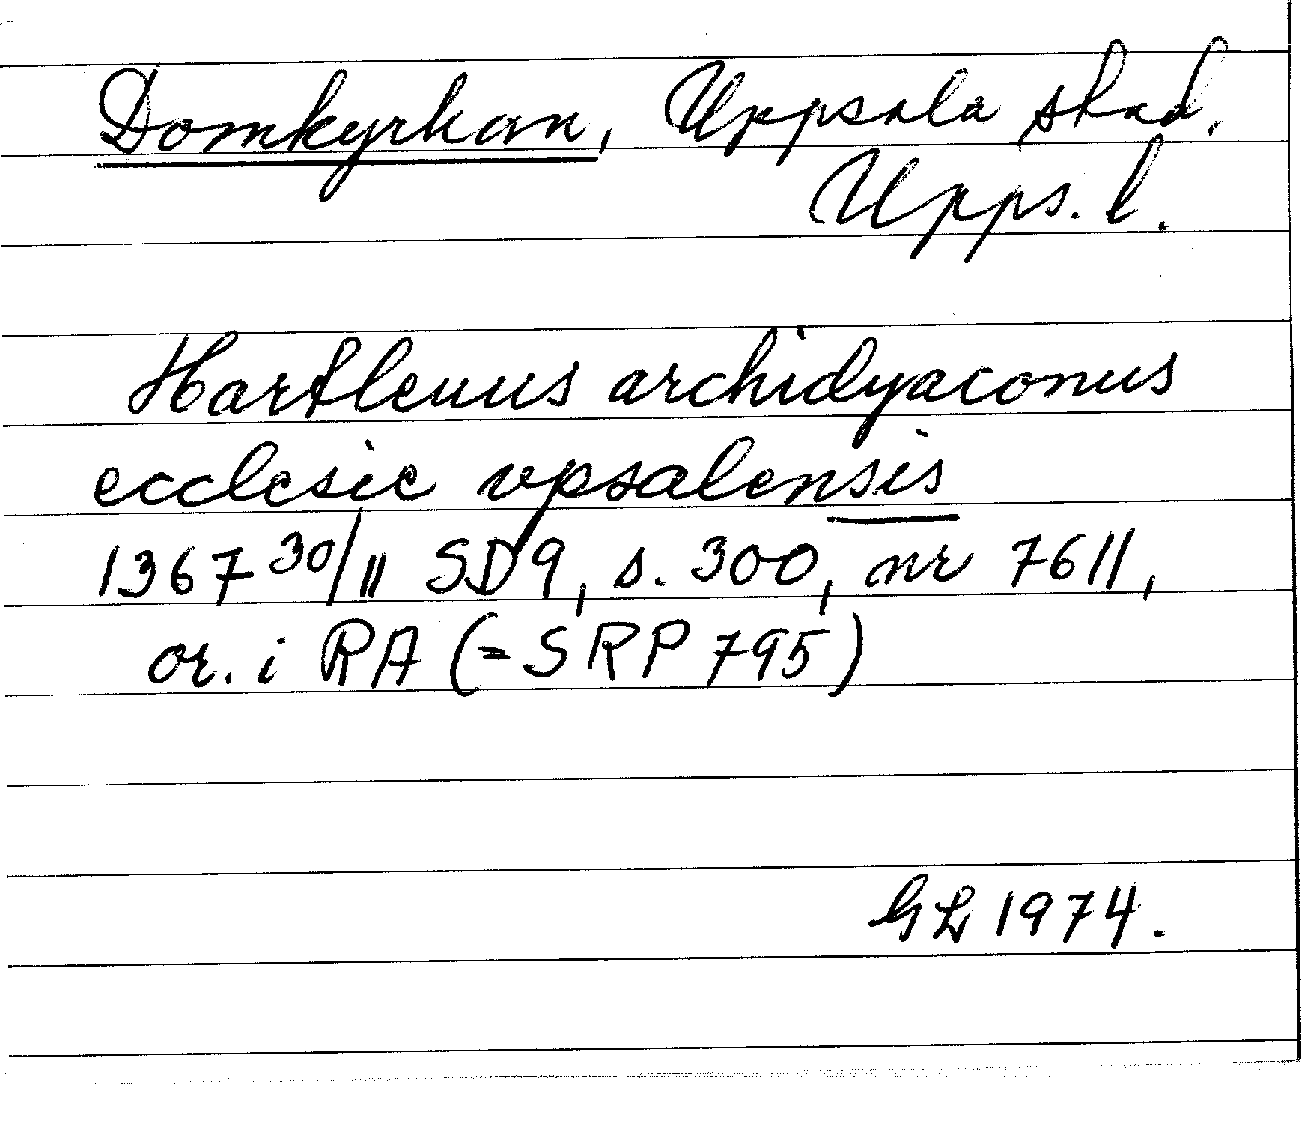 Domkyrkan, Uppsala stad.
Upps. l.
Hartleuus archidyaconus
ecclesie vpsalensis
1367 30/11 SD9, s. 300, nr 7611,
or. i RA (=SRP 795)
GL 1974.